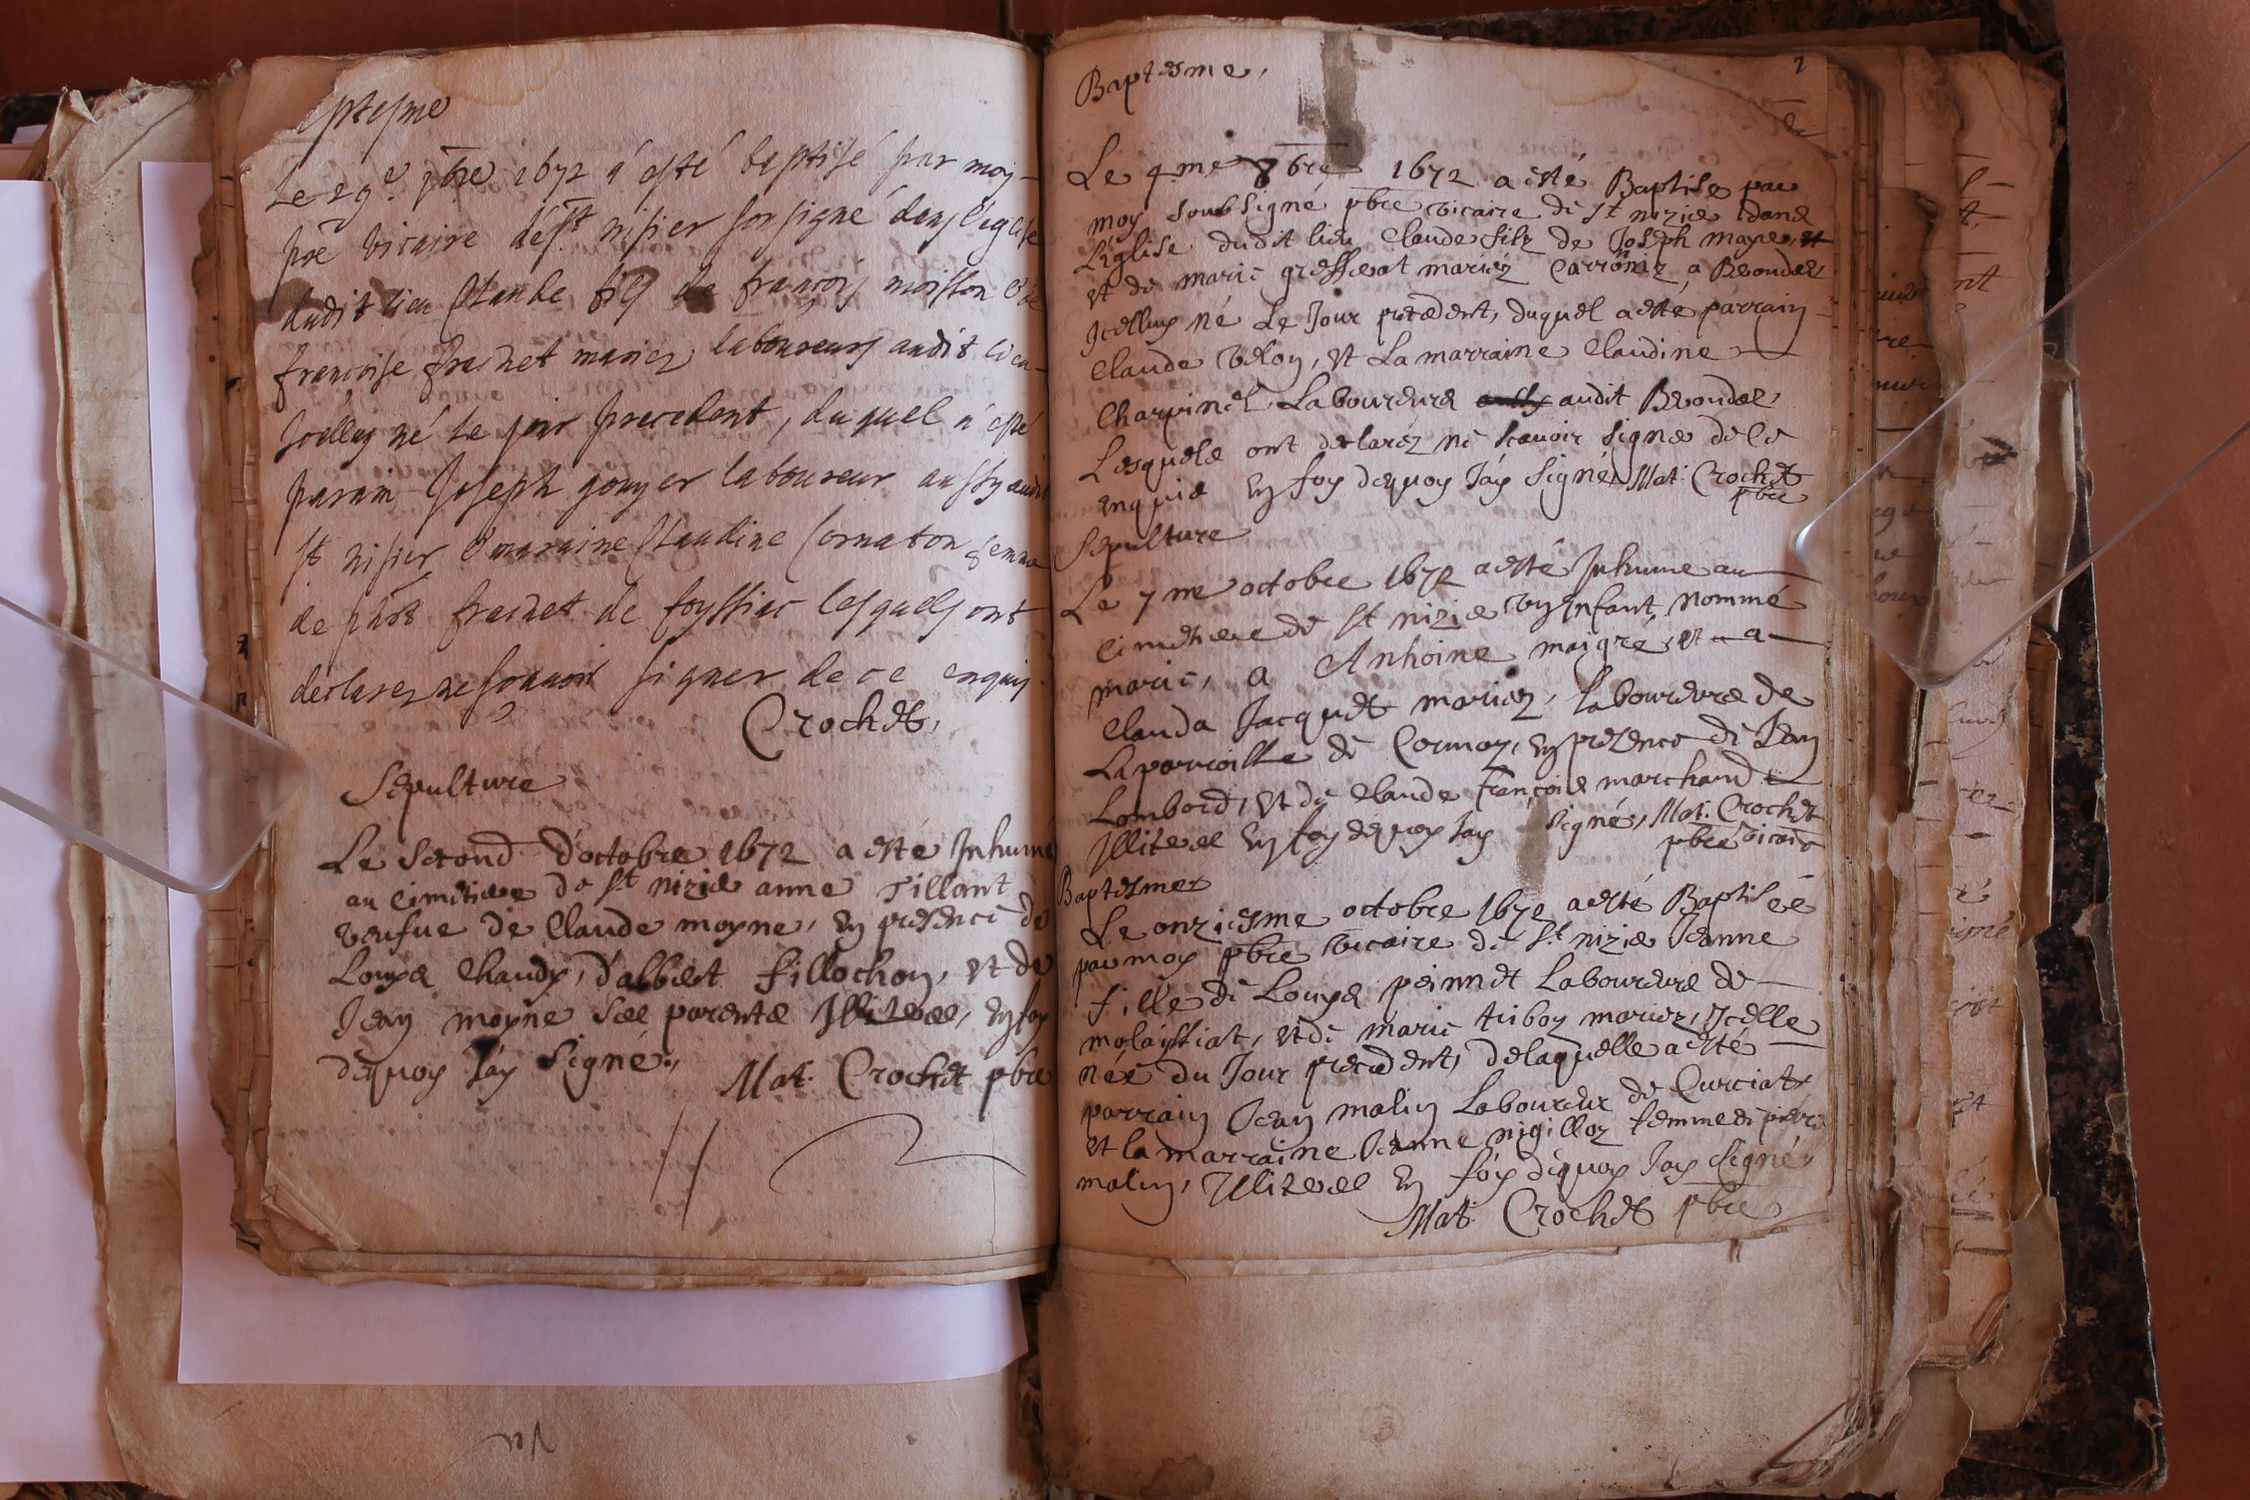 ptesme
Le 29e 7bre 1672 à esté baptisé par moy
pbre vicaire de St nisier sousigné dans l'eglise
dudit lieu Claude fils de françois moisson et de
françoise frainet mariez laboureurs audit lieu
Jcelluy né le jour precedent, duquel à esté
parain Joseph gouyer laboureur aussy audit
St nisier et maraine Claudine Cornaton femme
de phbt frainet de foyssiac lesquels ont
declarez ne sçauoir signer de ce enquis
Crochet,
Sepulture
Le second d'octobre 1672 a esté Inhumé
au cimitiere de St nizier anne Tillant
veufue de Claude moyne, En presence de
Louys Chaudy, d'albert fillochon, et de
Jean moyne ses parents Illiteres, En foy
dequoy J'ay signé.,
Mat. Crochet pbre
Baptesme,
2
Le 4me 8bre 1672 a esté Baptise par
moy soubsigné pbre vicaire de St nizier dans
L'Eglise dudit lieu Claude filz de Joseph mayre, et
et de marie greffierat mariéz Carronier a Brondes
Jcelluy né Le Jour precedent, duquel a esté parrain
Claude Velon, et La marraine Claudine
Charvinet Laboureurs audit Brondes,
Lesquels ont declaréz ne scauoir signer de Ce
enquis En foy dequoy J'ay signé Mat. Crochet
pbre
Sepulture
Le 7me octobre 1672 a esté Inhume au
cimetiere de St nizier vn Enfant, nommé
marie, a Anhoine maigre, et a
Clauda Jacquet mariez, laboureurs de
La parroisse de Cormoz, En presence de Jean
Lombard, et de Claude françois marchand
Illiteres En foy dequoy Jay signé, Mat. Crochet
pbre vicaire
Baptesme
Le onziesme octobre 1672 a esté Baptisée
par moy pbre vicaire de St nizier Jeanne
fille de Louys peinnet Laboureurs de
molaissiat, et de marie tiboz mariez, Jcelle
née du Jour precedent, delaquelle a esté
parrain Jean malin Laboureur de Curciat
et la marraine Jeanne nigilloz femme de pierre
malin, Illiteres En foy dequoy Jay signé
Mat. Crochet pbre